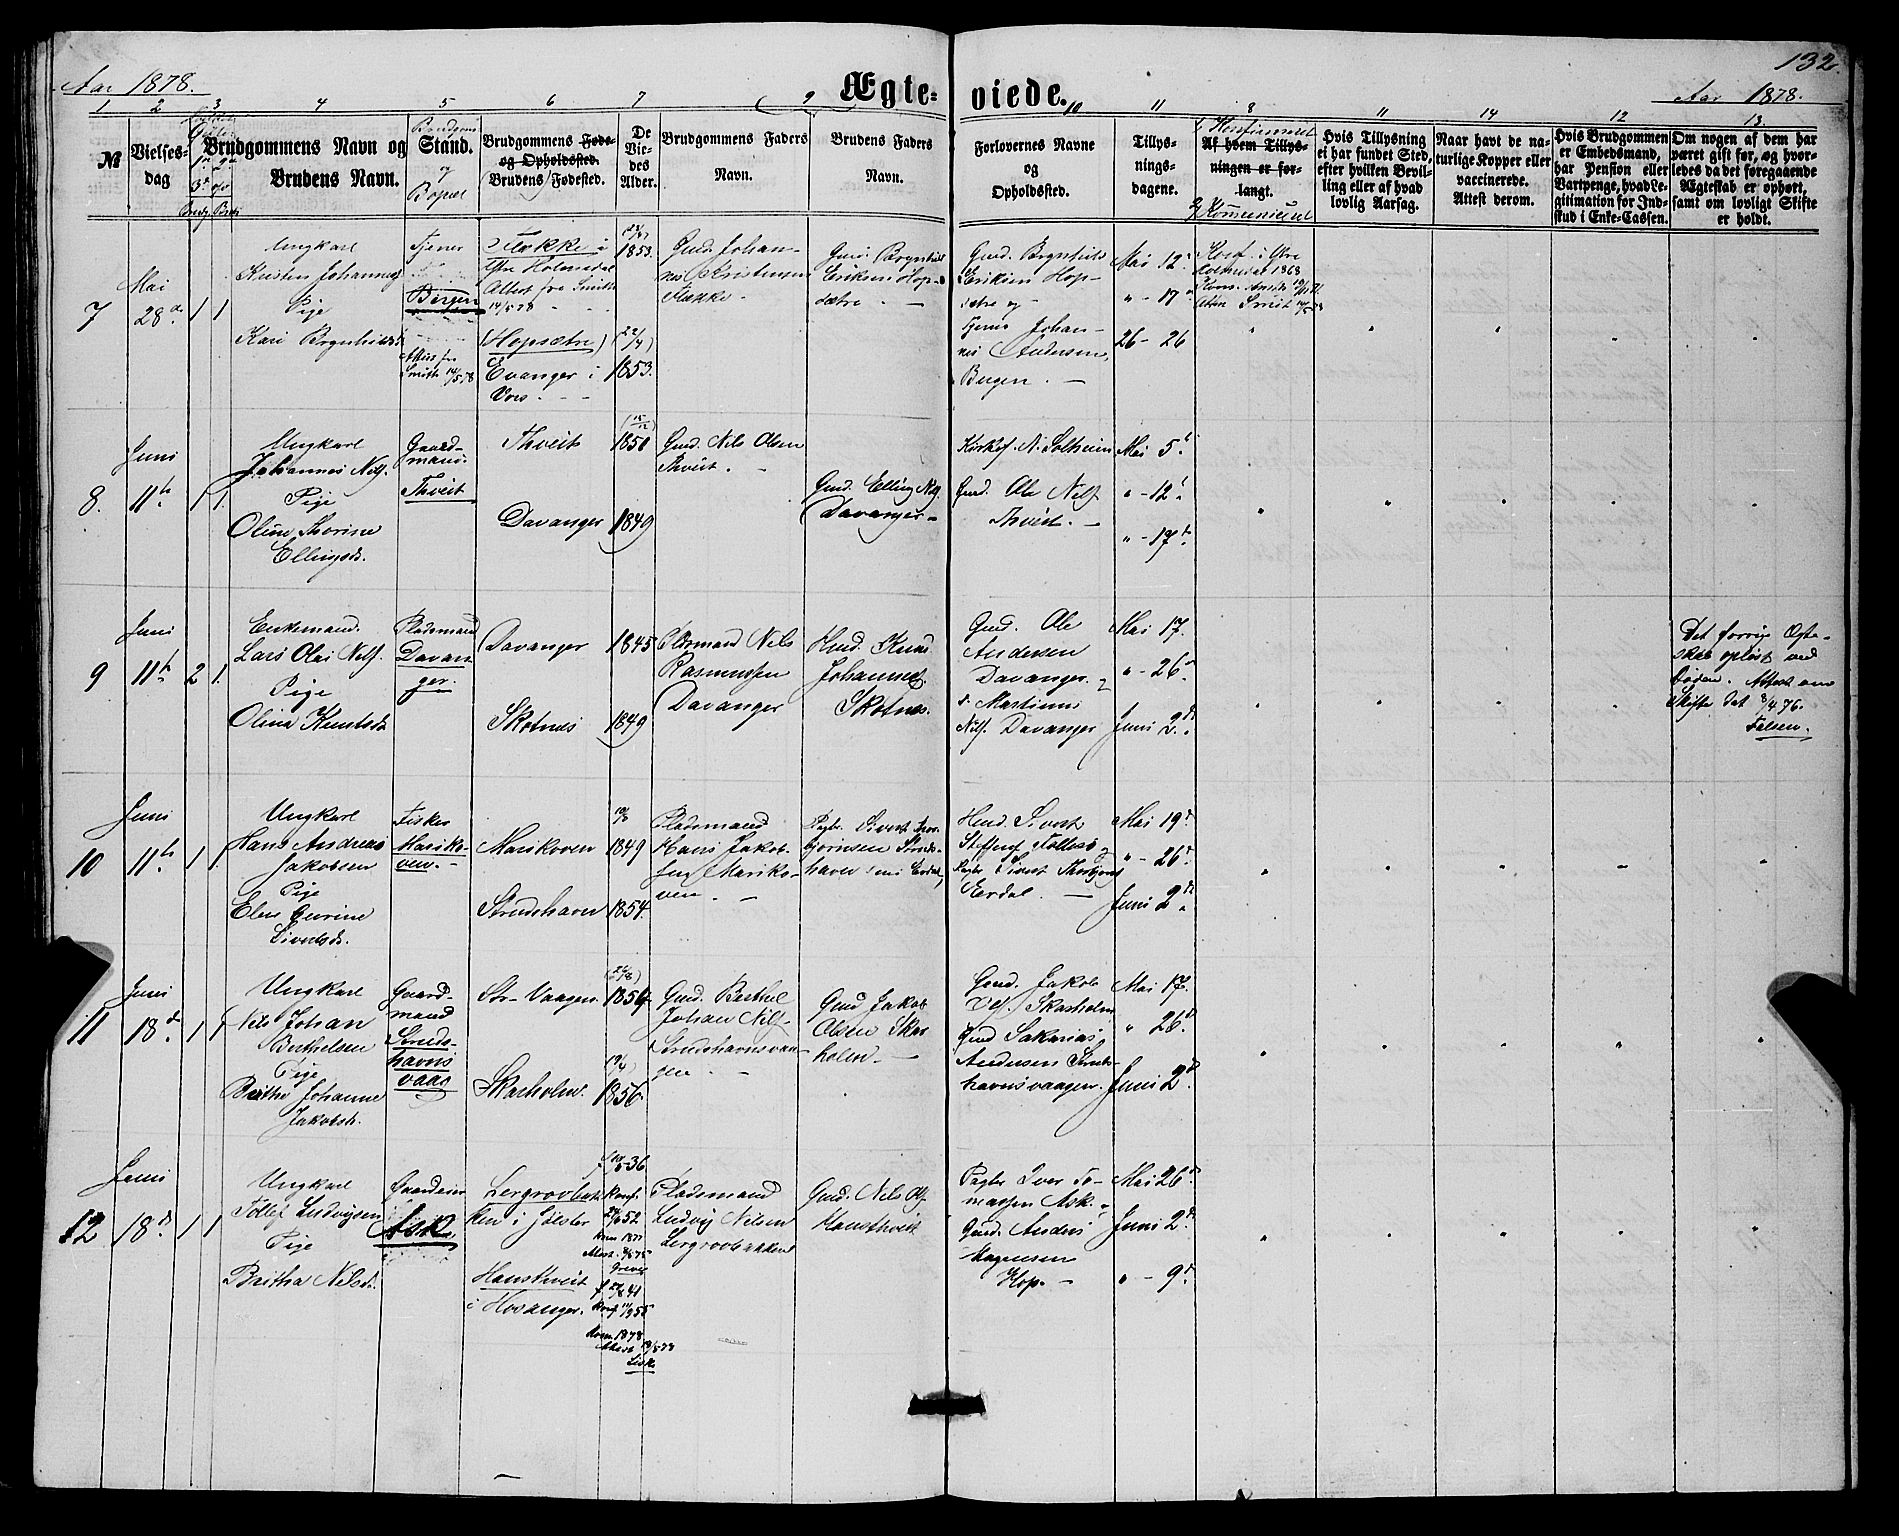 Aar 1878.
Ægte- viede.
132.
Aar 1878.
1 2 3 4 5 6 7 9 10 11 8 11 14 12 13.
№
Vielses-
dag
Brudgommens Navn og
Brudens Navn.
Brudgoms
Stand.
og
Bopæl
Brudgommens Føde-
og Opholdssted.
Brudens Fødested.
De
Vie-
des
Alder.
Brudgommens Faders
Navn.
Brudens Faders
Navn.
Forlovernes Navne
og
Opholdssted.
Tillys-
nings-
dagene.
1/ Konfirmeret
Af hvem Tillys-
ningen er for-
langt.
2/ Kommuniceret
Hvis Tillysning
ei har fundet Sted,
efter hvilken Bevil-
ling eller af hvad
lovlig Aarsag.
Naar havt de na-
turlige Kopper eller
vaccinerede.
Attest derom.
Hvis Brudgommen
er Embedsmand,
har Pension eller
Vartpenge, hvad Le-
gitimation for Ind-
skud i Enke-Cassen.
Om nogen af dem har
været gift før, og hvor-
ledes da det foregaaende
Ægteskab er ophørt,
samt om lovligt Skifte
er holdt.
7
Mai
28de
1 1
Ungkarl
Kristen Johannes
Pige
Kari Brynhilds
Tjener
Bergen
Attest fra
Smith 14/5 78
Flekke i
Ytre Holmedal
Attest fra Smith
14/5 78
(Hopsætre)
Evanger i
Vors.
1853.
(22/4)
1853.
Gmd. Johan-
nes Kristensen
Flekke.
Gmd. Brynhild
Eriksen Hop-
sætre.
Gmd. Brynhild
Eriksen Hop-
sætre og
Tjener Johan-
nes Andersen,
Bergen.
Mai 12.
" - 17
26 - 26
Konf. i Ytre
Holmedal 1868
8.
Juni
11te
1 1.
Ungkarl
Johannes Nils.
Pige
Oline Thorine
Ellingsd.
Gaard-
mand.
Thveit
Thveit
Davanger
1850
1849
Gmd. Nils Olsen
Thveit.
Gmd. Elling Nils.
Davanger
Kirkes. N. Solheim
Gmd. Ole Nils
Thveit.
Mai 5te
" - 12te
" - 17de
9
Juni
11te
2 1.
Enkemand.
Lars Olai Nils.
Pige
Olina Knutsd.
Pladsmand
Davan-
ger.
Davanger
Skotnes
1845
1849
Plsmand Nils
Rasmussen
Davanger
Hmd. Knud
Johannes
Skotnes.
Gmd. Ole
Andersen
Davanger. og
Martinus
Nils. Davanger
Mai 17.
" - 26
Juni 2den
Det forrige Ægte-
skab opløst ved
Døden. Attest om
Skifte dat 8/4 76.
Falsen.
10
Juni
11te
1 1.
Ungkarl
Hans Andreas
Jakobsen
Pige
Elen Gurine
Sivertsd.
Fisker
Mariko-
ven.
Marikoven
Strudshavn
1849
1854.
Pladsmand
Hans Jakob-
sen Mariko-
ven.
Pgbr. Sivert Thor-
bjørnsen Struds-
havn
Hmd. Sivert
Steffens. Follesø og
Pgbr. Sivert Thorbjørns
Erdal.
Mai 19de
" - 26de
Juni 2den
11
Juni
18de
1 1
Ungkarl
Nils Johan
Berthelsen
Pige
Brithe Johanne
Jakobsd.
Gaard-
mand
Struds-
havns
vaag
Str- Vaagen
Skarholm.
1854
1856.
Gmd. Berthel
Johan Nils
Strudshavnsvaa-
gen.
Gmd Jakob
Olsen Skar
holm.
Gmd. Jakob
Ols. Skarholm
Gmd Sakarias
Andersen Struds-
havnsvaagen.
Mai 17.
" 26de
Juni 2den
12
Juni
18de
1 1
Ungkarl
Tollef Ludvigsen
Pige
Britha Nilsd.
Gaardeier
Ask
Lergrovbak
ken i Gloster
Hansthveit
i Hosanger.
Konf.
Attest
Greve
Kom 1878
Pladsmand
Ludvig Nilsen
Lergrovbakken
Gmd. Nils Ols
Hansthveit
Pgbr Iver To-
massen Ask. og
Gmd. Anders
Magnesen
Hop.
Mai 26de
Juni 2den
" - 9de